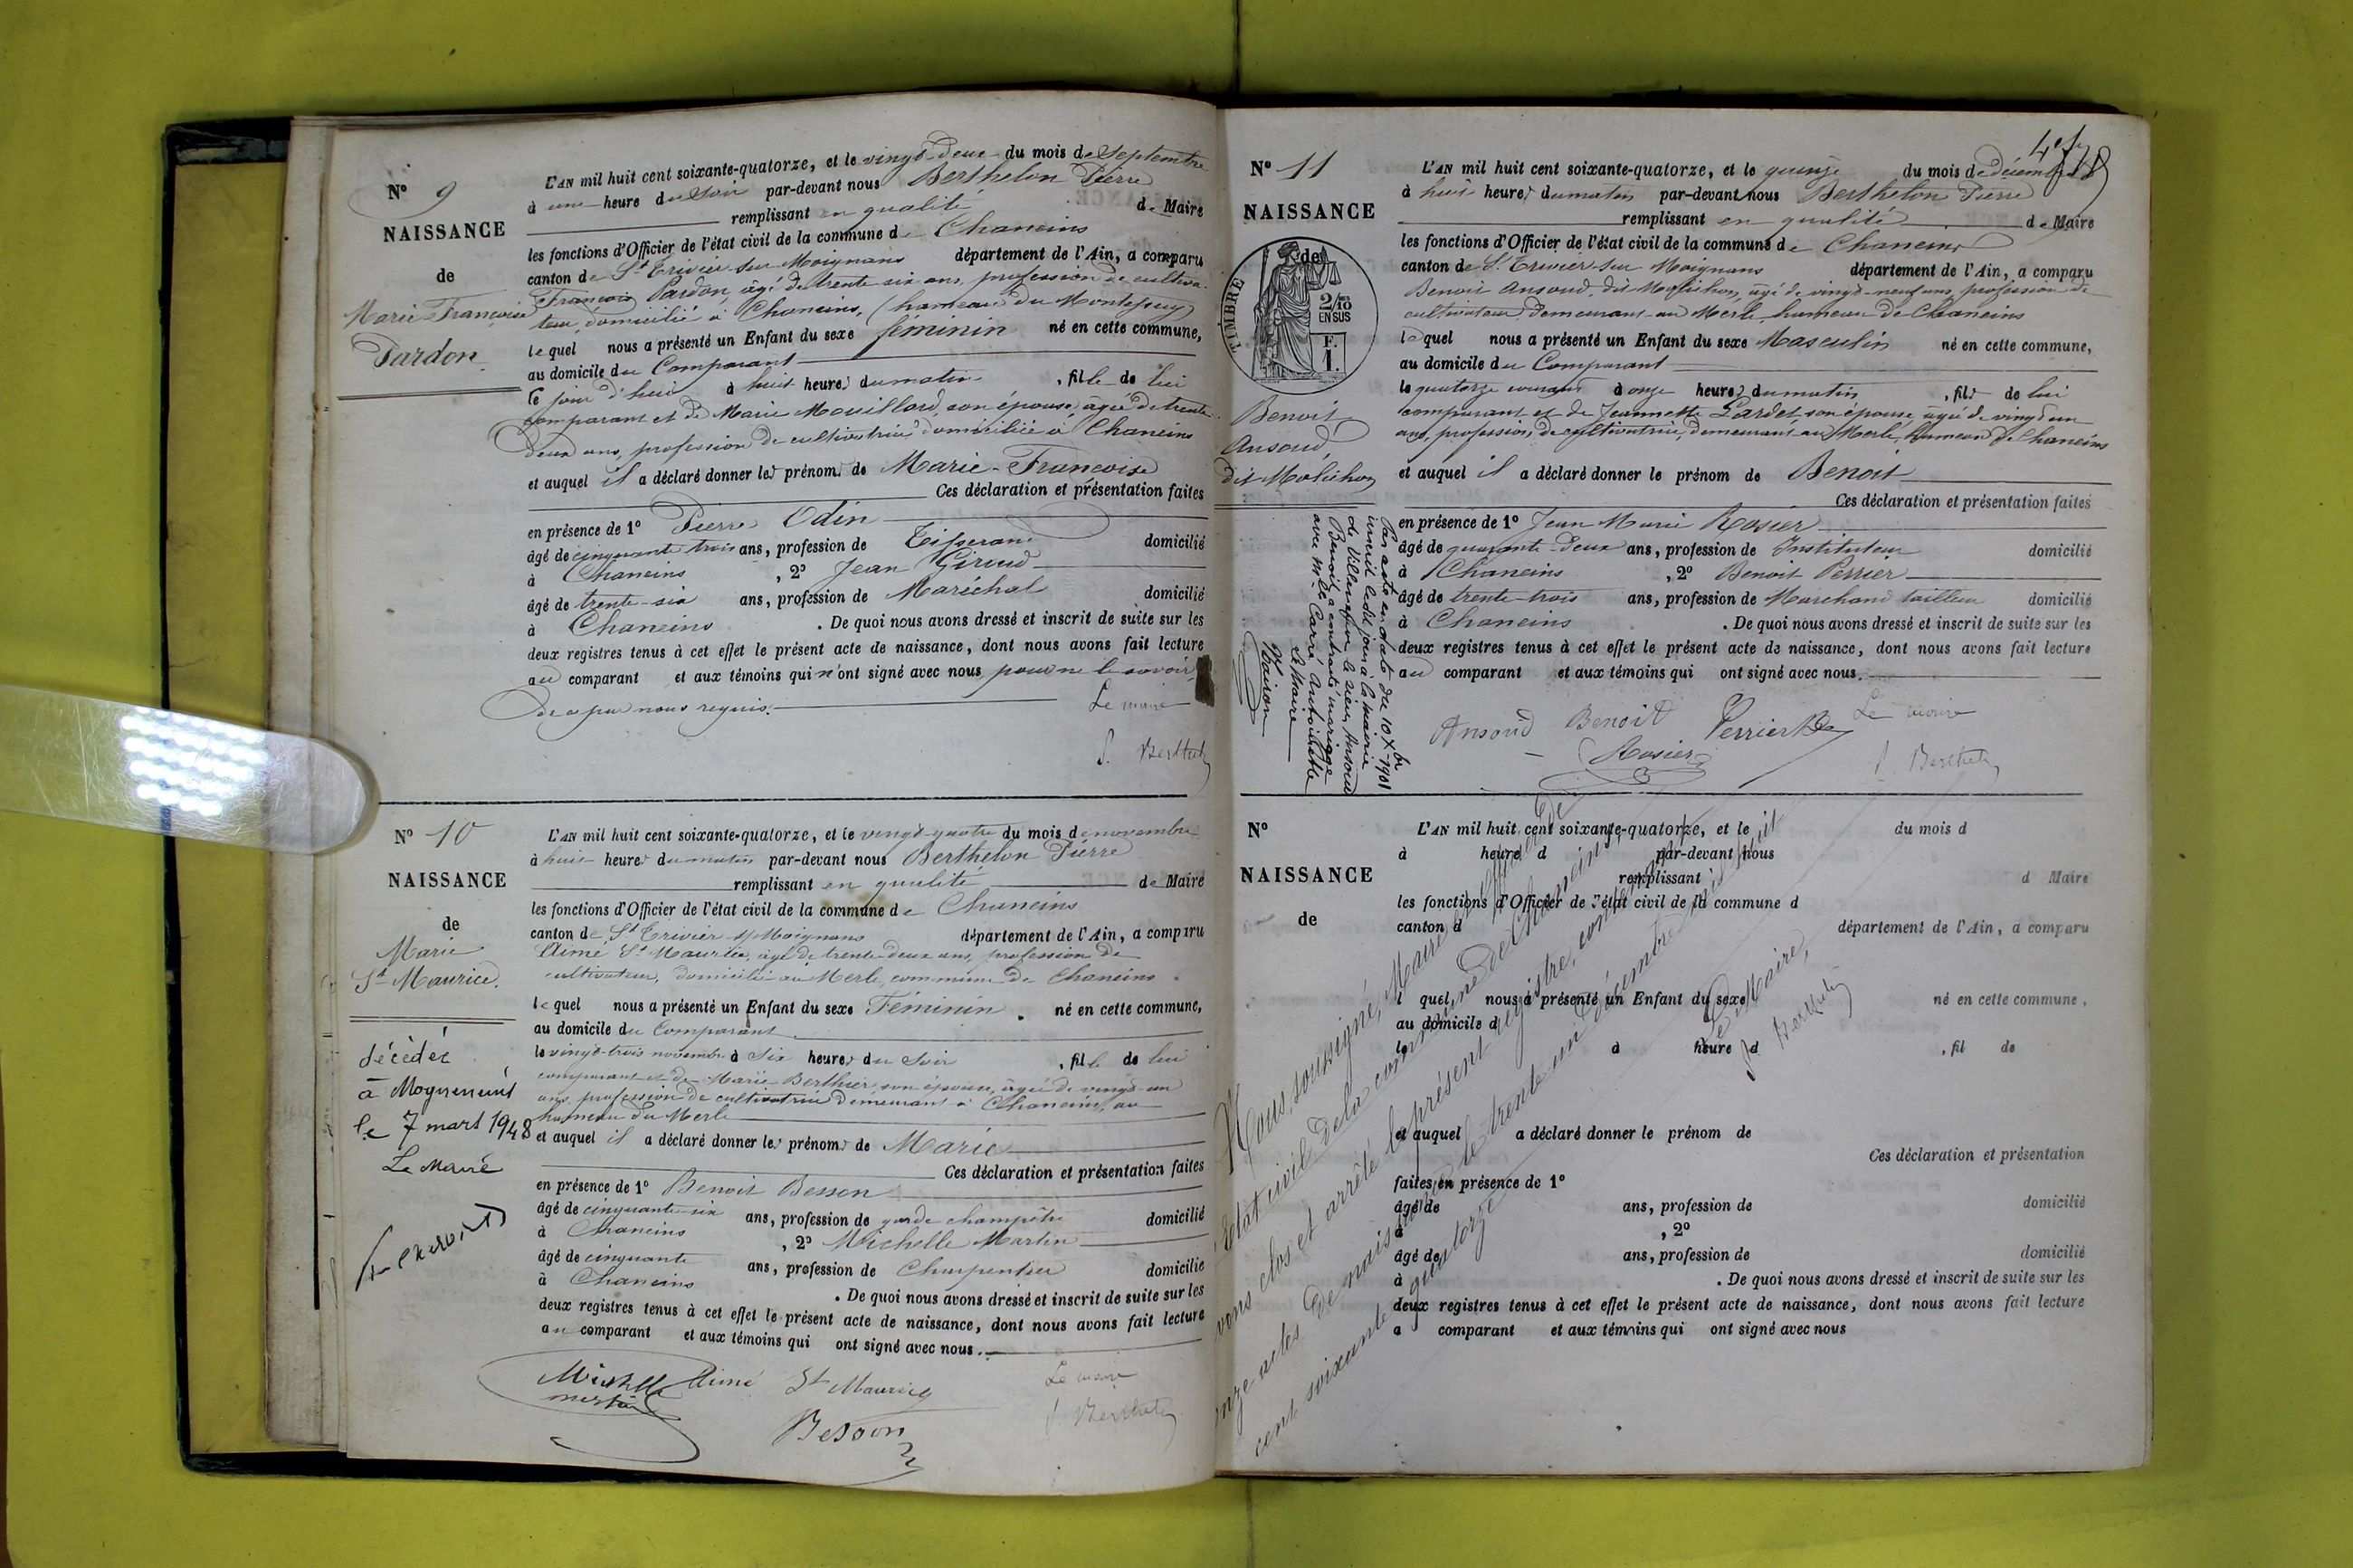 N° 9
NAISSANCE
de
Marie Françoise
Pardon
L'AN mil huit cent soixante-quatorze, et le vingt-deux du mois de Septembre
à une heure du Soir par-devant nous Berthelon Pierre
remplissant en qualité de Maire
les fonctions d'Officier de l'état civil de la commune de Chaneins
canton de St Trivier sur Moignans département de l'Ain, a comparu
François Pardon, âgé de trente six ans, profession de cultiva-
teur, domicilié à Chaneins, (hameau du Montessuy)
lequel nous a présenté un Enfant du sexe féminin né en cette commune,
au domicile du Comparant
Ce jour d'hui à huit heures du matin, fille de lui
comparant et de Marie Mouillard, son épouse, âgée de trente
deux ans, profession de cultivatrice domiciliée à Chaneins
et auquel il a déclaré donner les prénoms de Marie-Françoise
Ces déclaration et présentation faites
en présence de 1° Pierre Odin
âgé de cinquante trois ans, profession de Tisserand domicilié
à Chaneins, 2° Jean Giroud
âgé de trente-six ans, profession de Maréchal domicilié
à Chaneins. De quoi nous avons dressé et inscrit de suite sur les
deux registres tenus à cet effet le présent acte de naissance, dont nous avons fait lecture
au comparant et aux témoins qui n'ont signé avec nous pour ne le savoir
de ce par nous requis.
Le maire
P. Berthelon
N° 10
NAISSANCE
de
Marie
St Maurice.
décédée
à Mogneneins
le 7 mars 1948
Le Maire
L'AN mil huit cent soixante-quatorze, et le vingt-quatre du mois de novembre
à huit heures du matin par-devant nous Berthelon Pierre
remplissant en qualité de Maire
les fonctions d'Officier de l'état civil de la commune de Chaneins
canton de St Trivier s/Moignans département de l'Ain, a comparu
Aimé St Maurice, âgé de trente-deux ans, profession de
cultivateur, domicilié au Merle, commune de Chaneins.
lequel nous a présenté un Enfant du sexe Féminin. né en cette commune,
au domicile du Comparant
le vingt-trois novembre à six heures du Soir, fille de lui
comparant et de Marie Berthier, son épouse, âgée de vingt-un
ans, profession de cultivatrice demeurant à Chaneins, au
hameau du Merle
et auquel il a déclaré donner les prénoms de Marie
Ces déclaration et présentation faites
en présence de 1° Benoit Besson
âgé de cinquante-six ans, profession de garde champêtre domicilié
à Chaneins, 2° Michelle Martin
âgé de cinquante ans, profession de Charpentier domicilié
à Chaneins. De quoi nous avons dressé et inscrit de suite sur les
deux registres tenus à cet effet le présent acte de naissance, dont nous avons fait lecture
au comparant et aux témoins qui ont signé avec nous.
Michelle Aimé St Maurice Le maire
martin P. Berthelon
Besson
N° 11
NAISSANCE
de
TIMBRE
2/10
EN SUS
F.
1.
Benoit
Ansoud,
dit Molichon
Par acte en date du 10 Xbre 1901
inscrit le dit jour à la mairie
de Villefranche le sieur Ansoud
Benoit a contracté mariage
avec Mlle Carré Antoinette
Le Maire
L'AN mil huit cent soixante-quatorze, et le quinze du mois de décembre
à huit heures du matin par-devant nous Berthelon Pierre
remplissant en qualité de Maire
les fonctions d'Officier de l'état civil de la commune de Chaneins
canton de St Trivier sur Moignans département de l'Ain, a comparu
Benoit Ansoud, dit Molichon, âgé de vingt-neuf ans, profession de
cultivateur demeurant au Merle, hameau de Chaneins
lequel nous a présenté un Enfant du sexe Masculin né en cette commune,
au domicile du Comparant
le quatorze courant à onze heures du matin, fils de lui
comparant et de Jeannette Gardet son épouse âgée de vingt un
ans, profession de cultivatrice, demeurant au Merle, hameau de Chaneins
et auquel il a déclaré donner le prénom de Benoit
Ces déclaration et présentation faites
en présence de 1° Jean Marie Rosier
âgé de quarante-deux ans, profession de Instituteur domicilié
à Chaneins, 2° Benoit Perrier
âgé de trente-trois ans, profession de Marchand tailleur domicilié
à Chaneins. De quoi nous avons dressé et inscrit de suite sur les
deux registres tenus à cet effet le présent acte de naissance, dont nous avons fait lecture
au comparant et aux témoins qui ont signé avec nous.
Ansoud Benoit Perrier Le maire
Rosier P. Berthelon
N°
NAISSANCE
de
L'AN mil huit cent soixante-quatorze, et le du mois d
à heure d par-devant nous
remplissant d Maire
les fonctions d'Officier de l'état civil de la commune d
canton d département de l'Ain, a comparu
l quel nous a présenté un Enfant du sexe né en cette commune,
au domicile d
le à heure d, fil de
et auquel a déclaré donner le prénom de
Ces déclaration et présentation
faites en présence de 1°
âgé de ans, profession de domicilié
à, 2°
âgé de ans, profession de domicilié
à. De quoi nous avons dressé et inscrit de suite sur les
deux registres tenus à cet effet le présent acte de naissance, dont nous avons fait lecture
a comparant et aux témoins qui ont signé avec nous
Nous, soussigné, Maire, officier de
l'état civil de la commune de Chaneins,
avons clos et arrêté le présent registre, contenant
onze actes de naissance le trente un décembre mil huit
cent soixante quatorze
Le Maire,
P. Berthelon